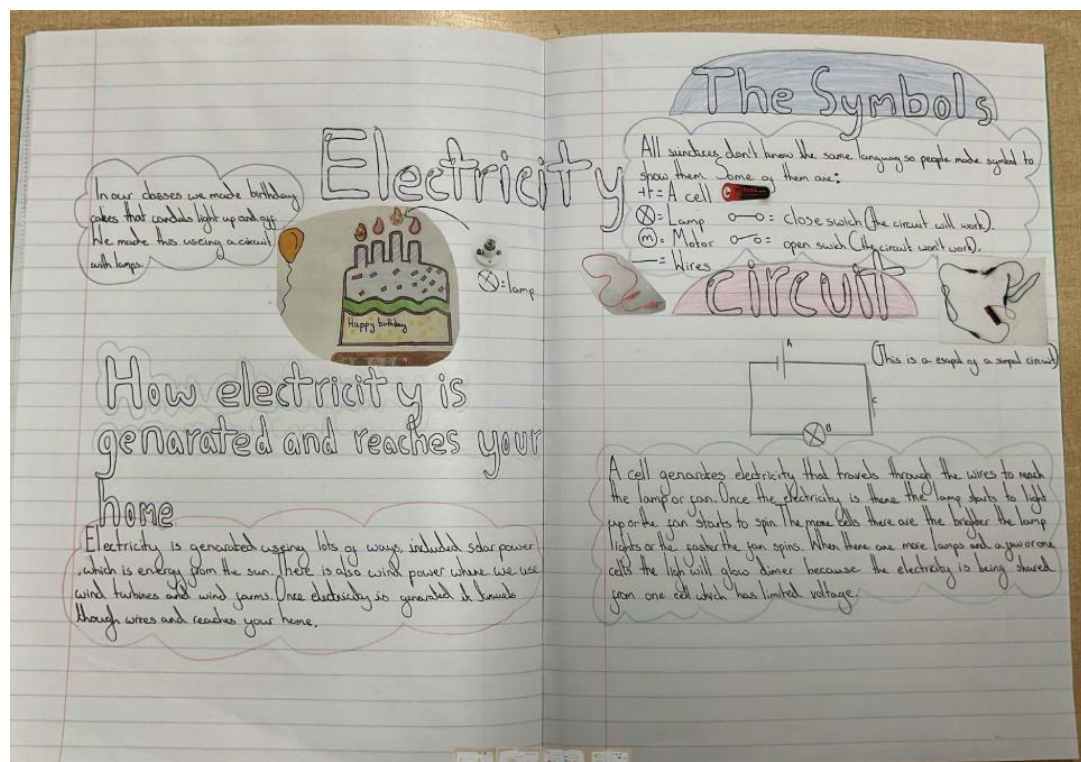 Electricity
In our classes we made birthday
cakes that candels light up and off.
We made this useing a circuit
with lamps.
= lamp
Happy birthday
How electricity is
genarated and reaches your
home
Electricity is genarated useing lots of ways, included solar power
, which is energy from the sun. There is also wind power where we use
wind turbines and wind farms. Once electricity is genarated it travels
though wires and reaches your home.
The Symbols
All sinctices don't know the same languag so people made symbol to
show them. Some of them are:
= A cell
= Lamp
= close swich (the circuit will work).
m = Motor
= open swich (the circuit won't work).
= Wires
circuit
A
(This is a exapal of a simpal circuit)
C
B
A cell genarates electricity that travels through the wires to reach
the lamp or fan. Once the electricity is there the lamp starts to light
up or the fan starts to spin. The more cells there are the brighter the lamp
lights or the faster the fan spins. When there are more lamps and a few or one
cells the ligh will glow dimer because the electricity is being shared
from one cell which has limited voltage.